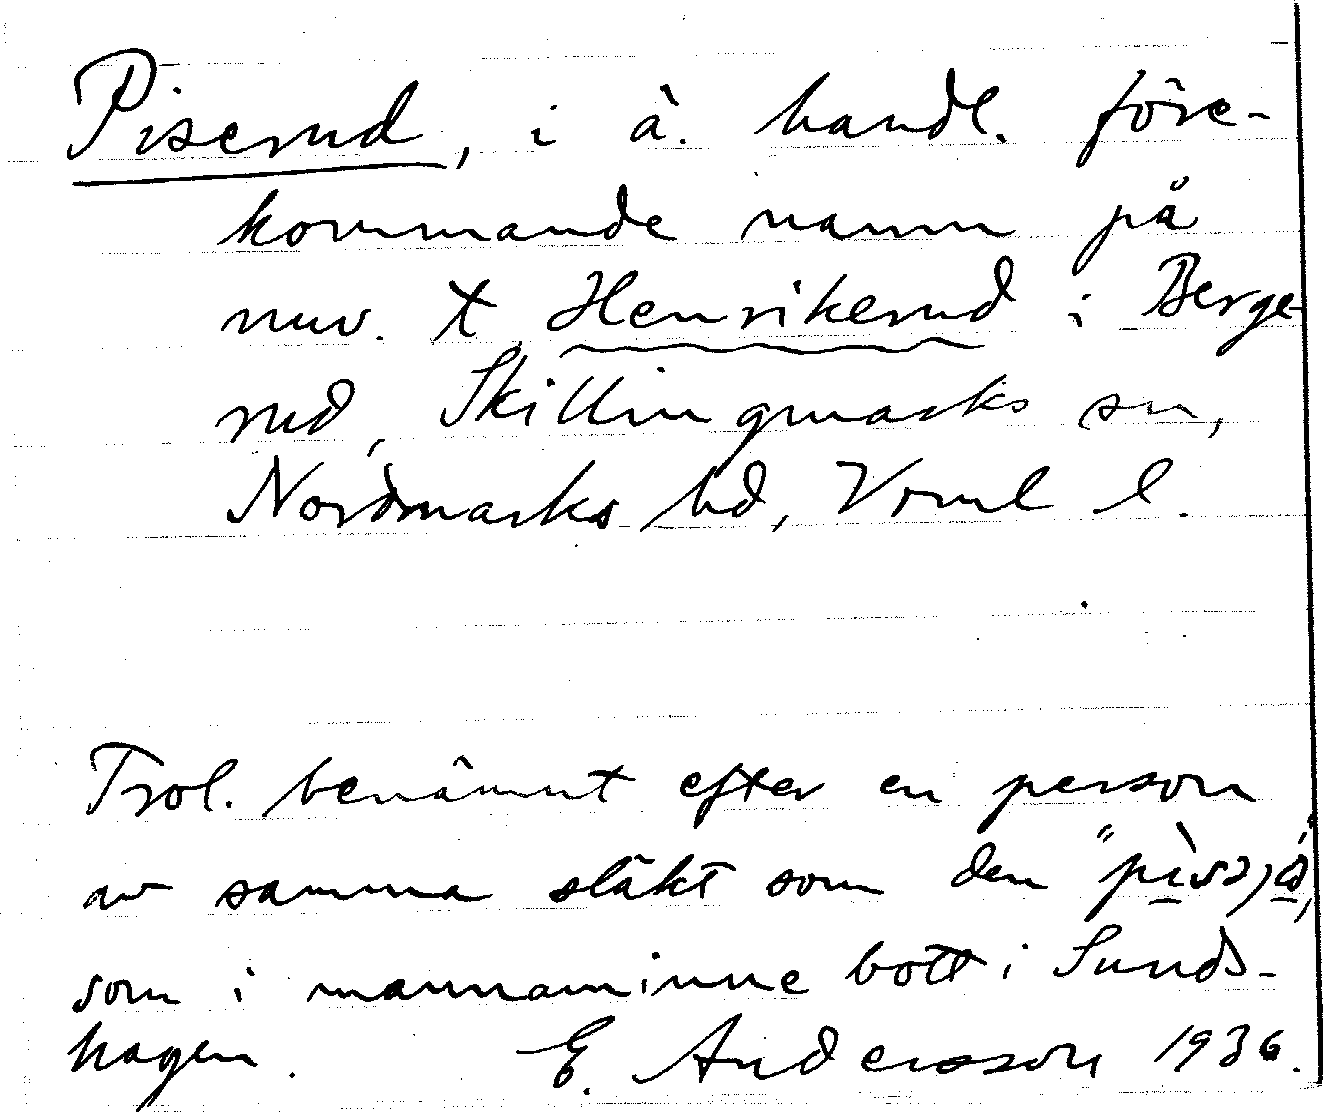 Piserud, i ä. handl. före-
kommande namn på
nuv. t Henrikerud i Berge-
rud, Skillingmarks sn,
Nordmarks hd, Vrml l.
Trol. benämnt efter en person
av samma släkt som den
som i mannaminne bott i Sunds-
hagen. E. Andersson 1936.